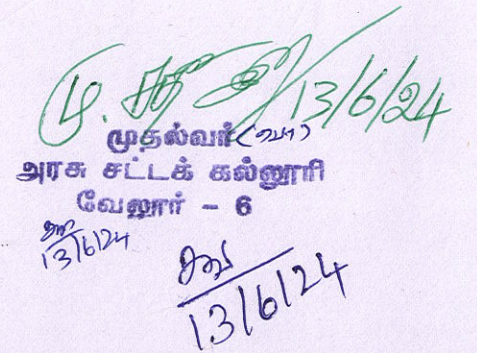 13/6/24
முதல்வர் (பொ)
அரசு சட்டக் கல்லூரி
வேலூர் - 6
13/6/24
13/6/24